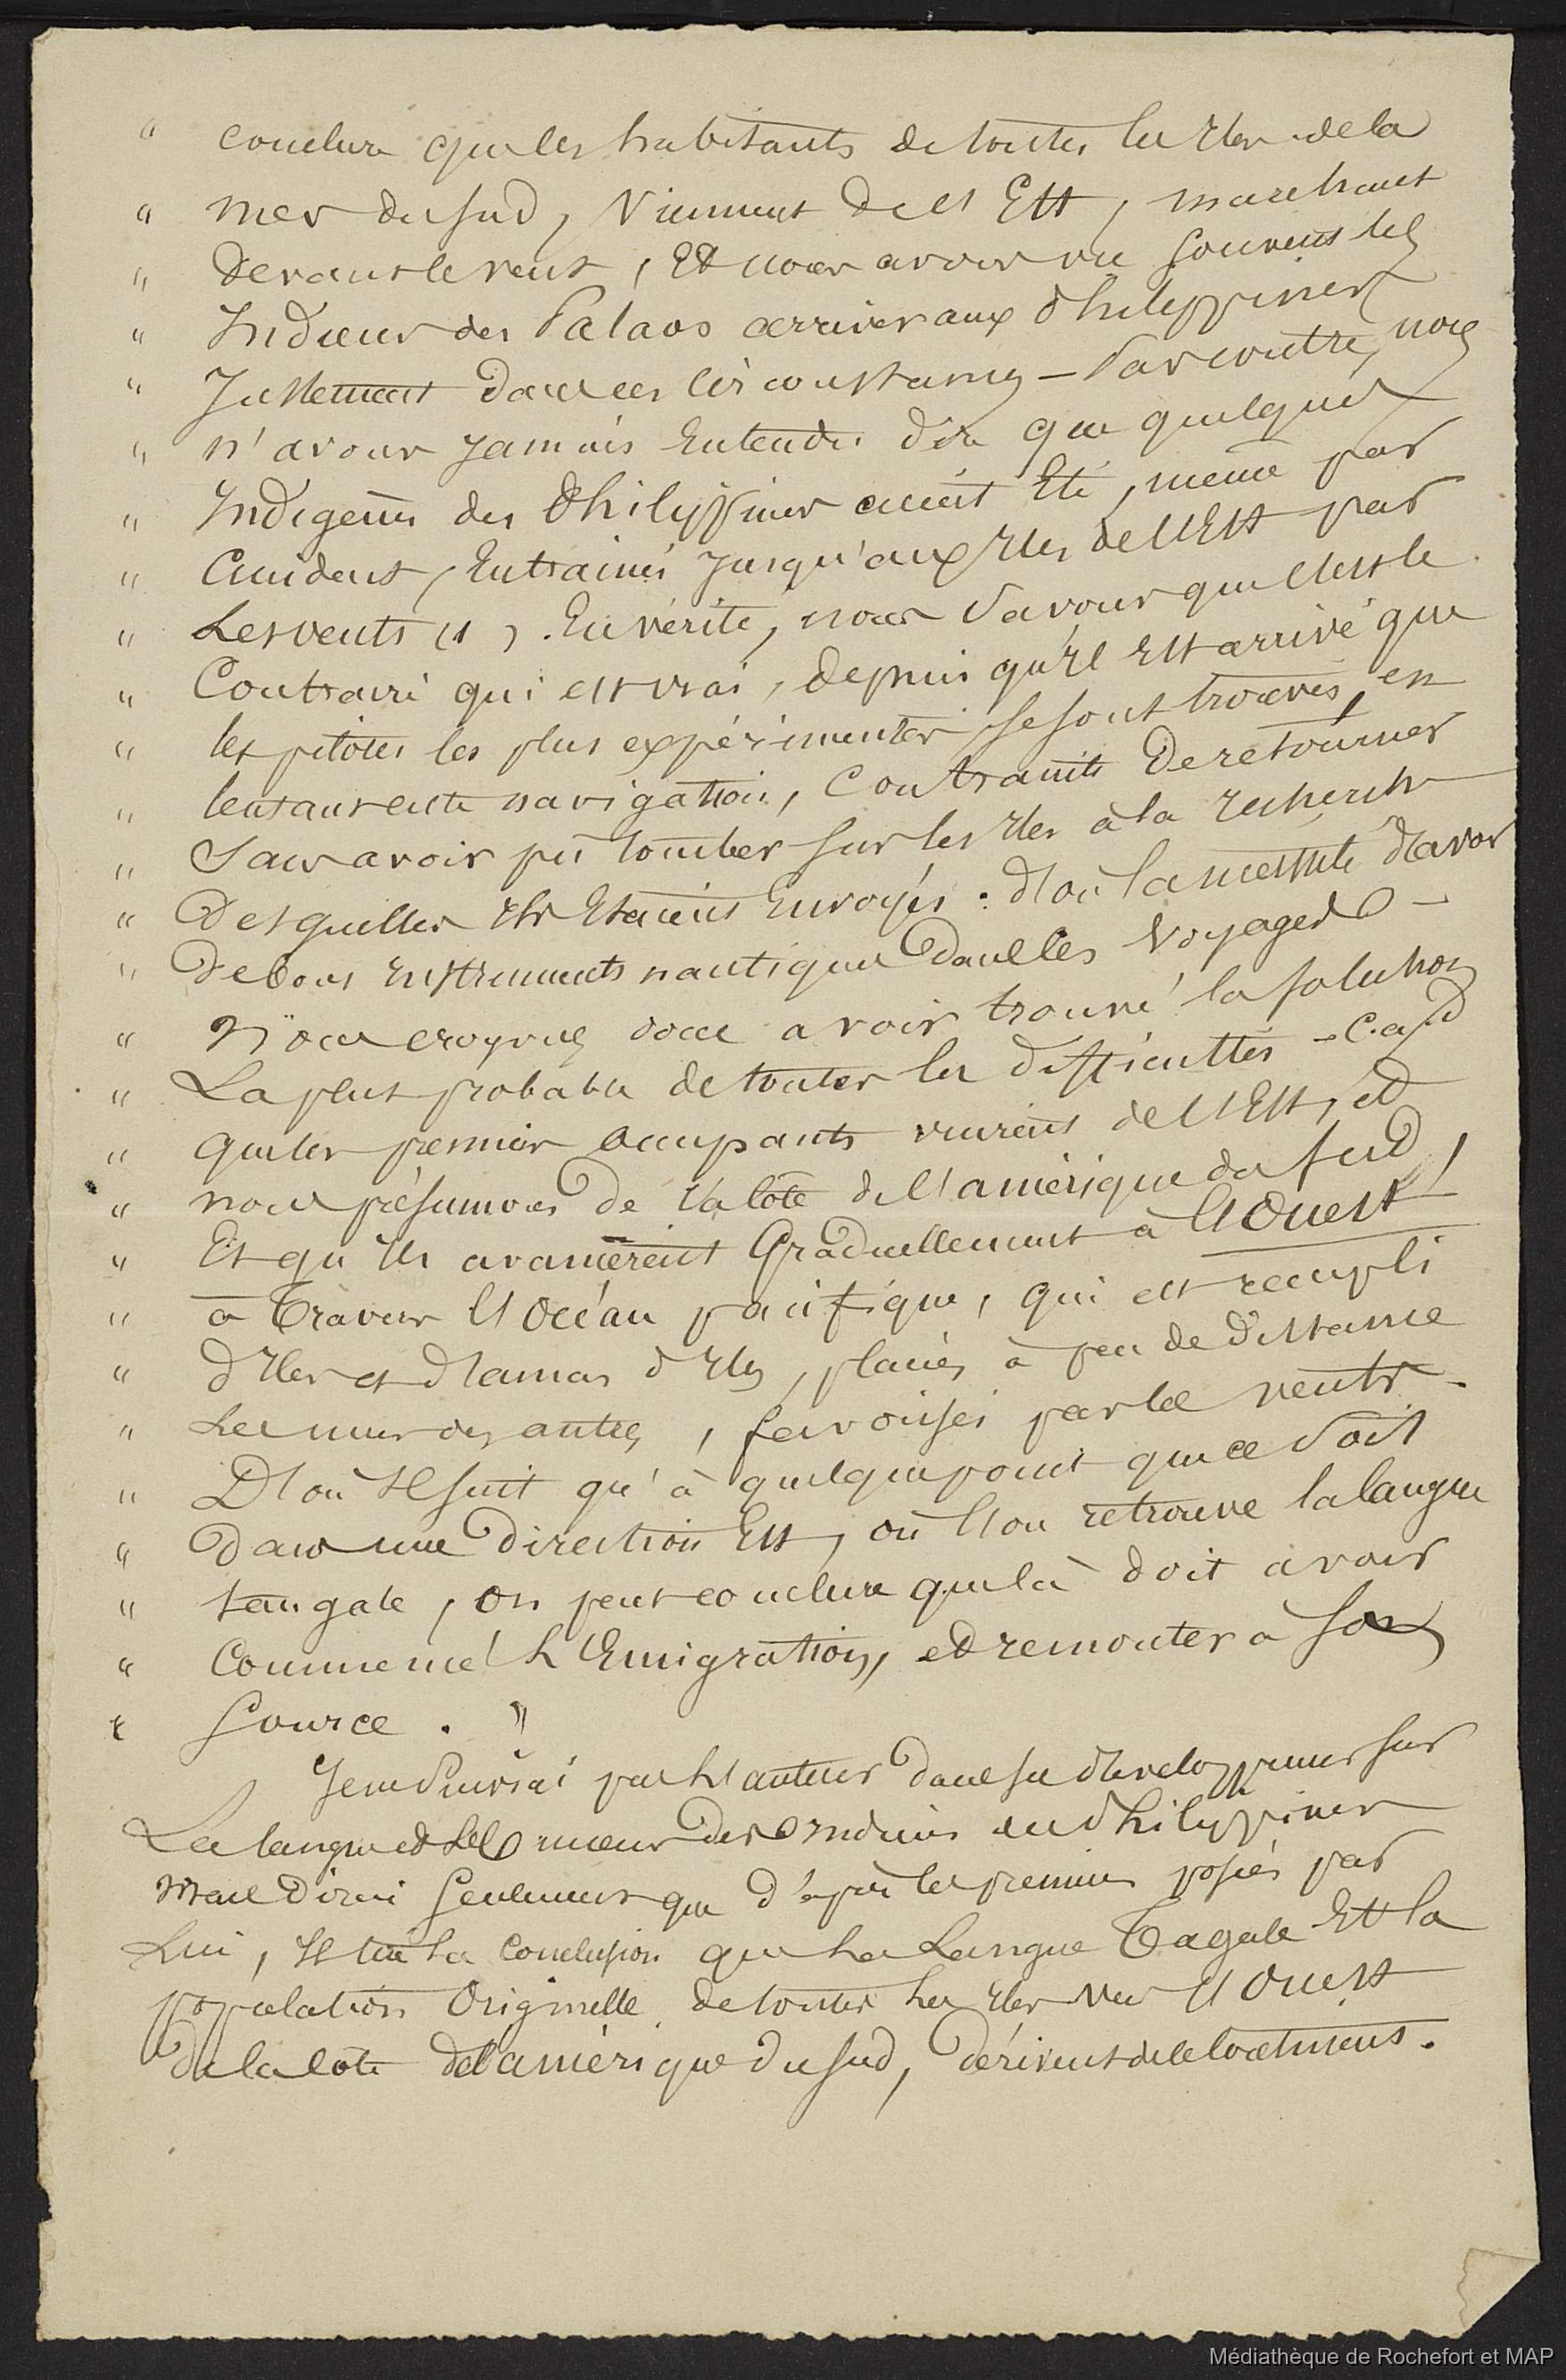 " conclure que les habitants de toutes les Iles de la
" mer du Sud, viennent de l'Est, marchant
" devant le vent, Et nous avons vu souvent les
" Indiens des Palaos arriver aux Philippines
" Justement dans ces circonstances – Par contre, nous
" n'avons jamais Entendu dire que quelques
" Indigènes des Philippines aient Eté, même par
" accident, Entrainés jusqu'aux Iles de l'Est par
" Les vents (1). En vérité, nous savons que c'est le
" Contraire qui est vrai, depuis qu'il Est arrivé que
" les pilotes les plus expérimentés se sont trouvés, en
" tentant cette navigation, Contraints De retourner
" Sans avoir pû tomber sur les Iles à la recherche
" Desquelles Ils Etaient Envoyés : d'où la nécessité d'avoir
" De bons Instruments nautiques dans les Voyages –
" Nous croyons donc avoir trouvé la solution
" La plus probable de toutes les difficultés – c. a. d
" que les premiers occupants vinrent de l'Est, et
" nous présumons de la Côte de l'amérique du sud,
" Et qu'Ils avancèrent Graduellement à l'Ouest
" à Travers l'Océan pacifique, qui est rempli
" d'Iles et d'amas d'Iles, placées à peu de distance
" Les unes des autres, favorisés par les vents –
" D'où Il suit qu'à quelque point que ce soit
" Dans une Direction Est, où l'on retrouve la langue
" tangale, on peut conclure que là doit avoir
" Commencé L'Emigration, et remonter à son
" Source. "
Je ne suivrai pas L'auteur dans ses développemens sur
La langue et Les mœurs des Indiens aux Philippines
Mais Dirai seulement que d'après les prémices posées par
Lui, Il tire la Conclusion que La Langue Tagale Et la
population Originelle de toutes Les Iles vers l'Ouest
de la Côte de l'amérique du Sud, dérivent de